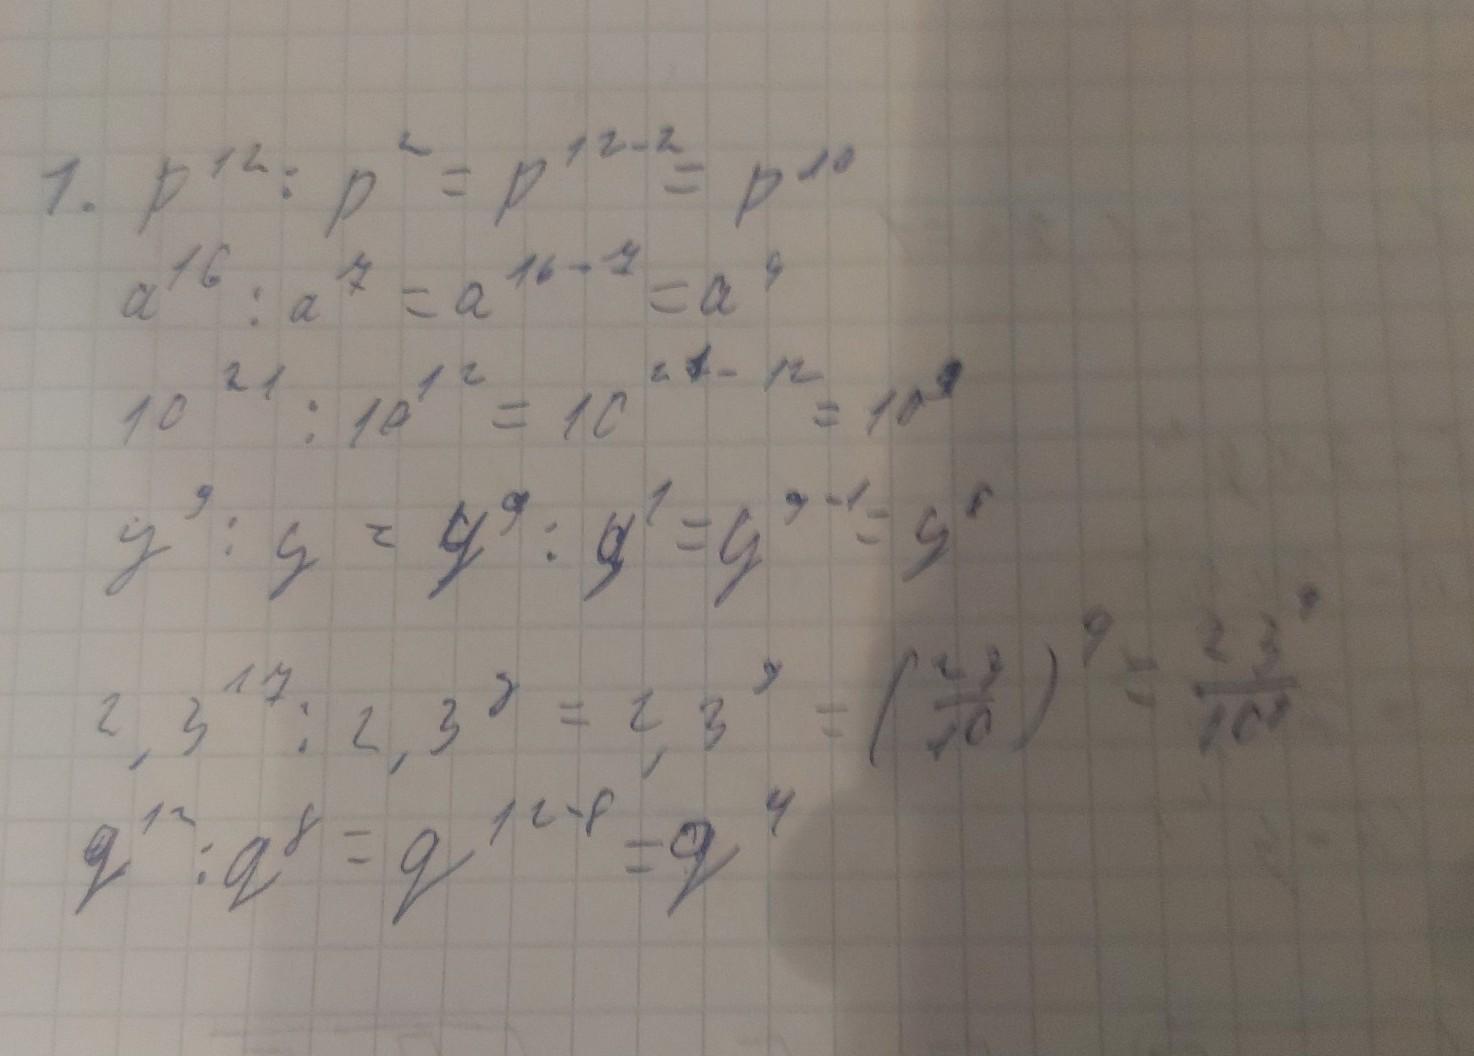 1. p¹²: p² = p¹²⁻² = p¹⁰
a¹⁶ : a⁷ = a¹⁶⁻⁷ = a⁹
10²¹ : 10¹² = 10²¹⁻¹² = 10⁹
y⁹ : y = y⁹ : y¹ = y⁹⁻¹ = y⁸
2,3¹⁷ : 2,3⁸ = 2,3⁹ = (23/10)⁹ = 23⁹/10⁹
q¹² : q⁸ = q¹²⁻⁸ = q⁴